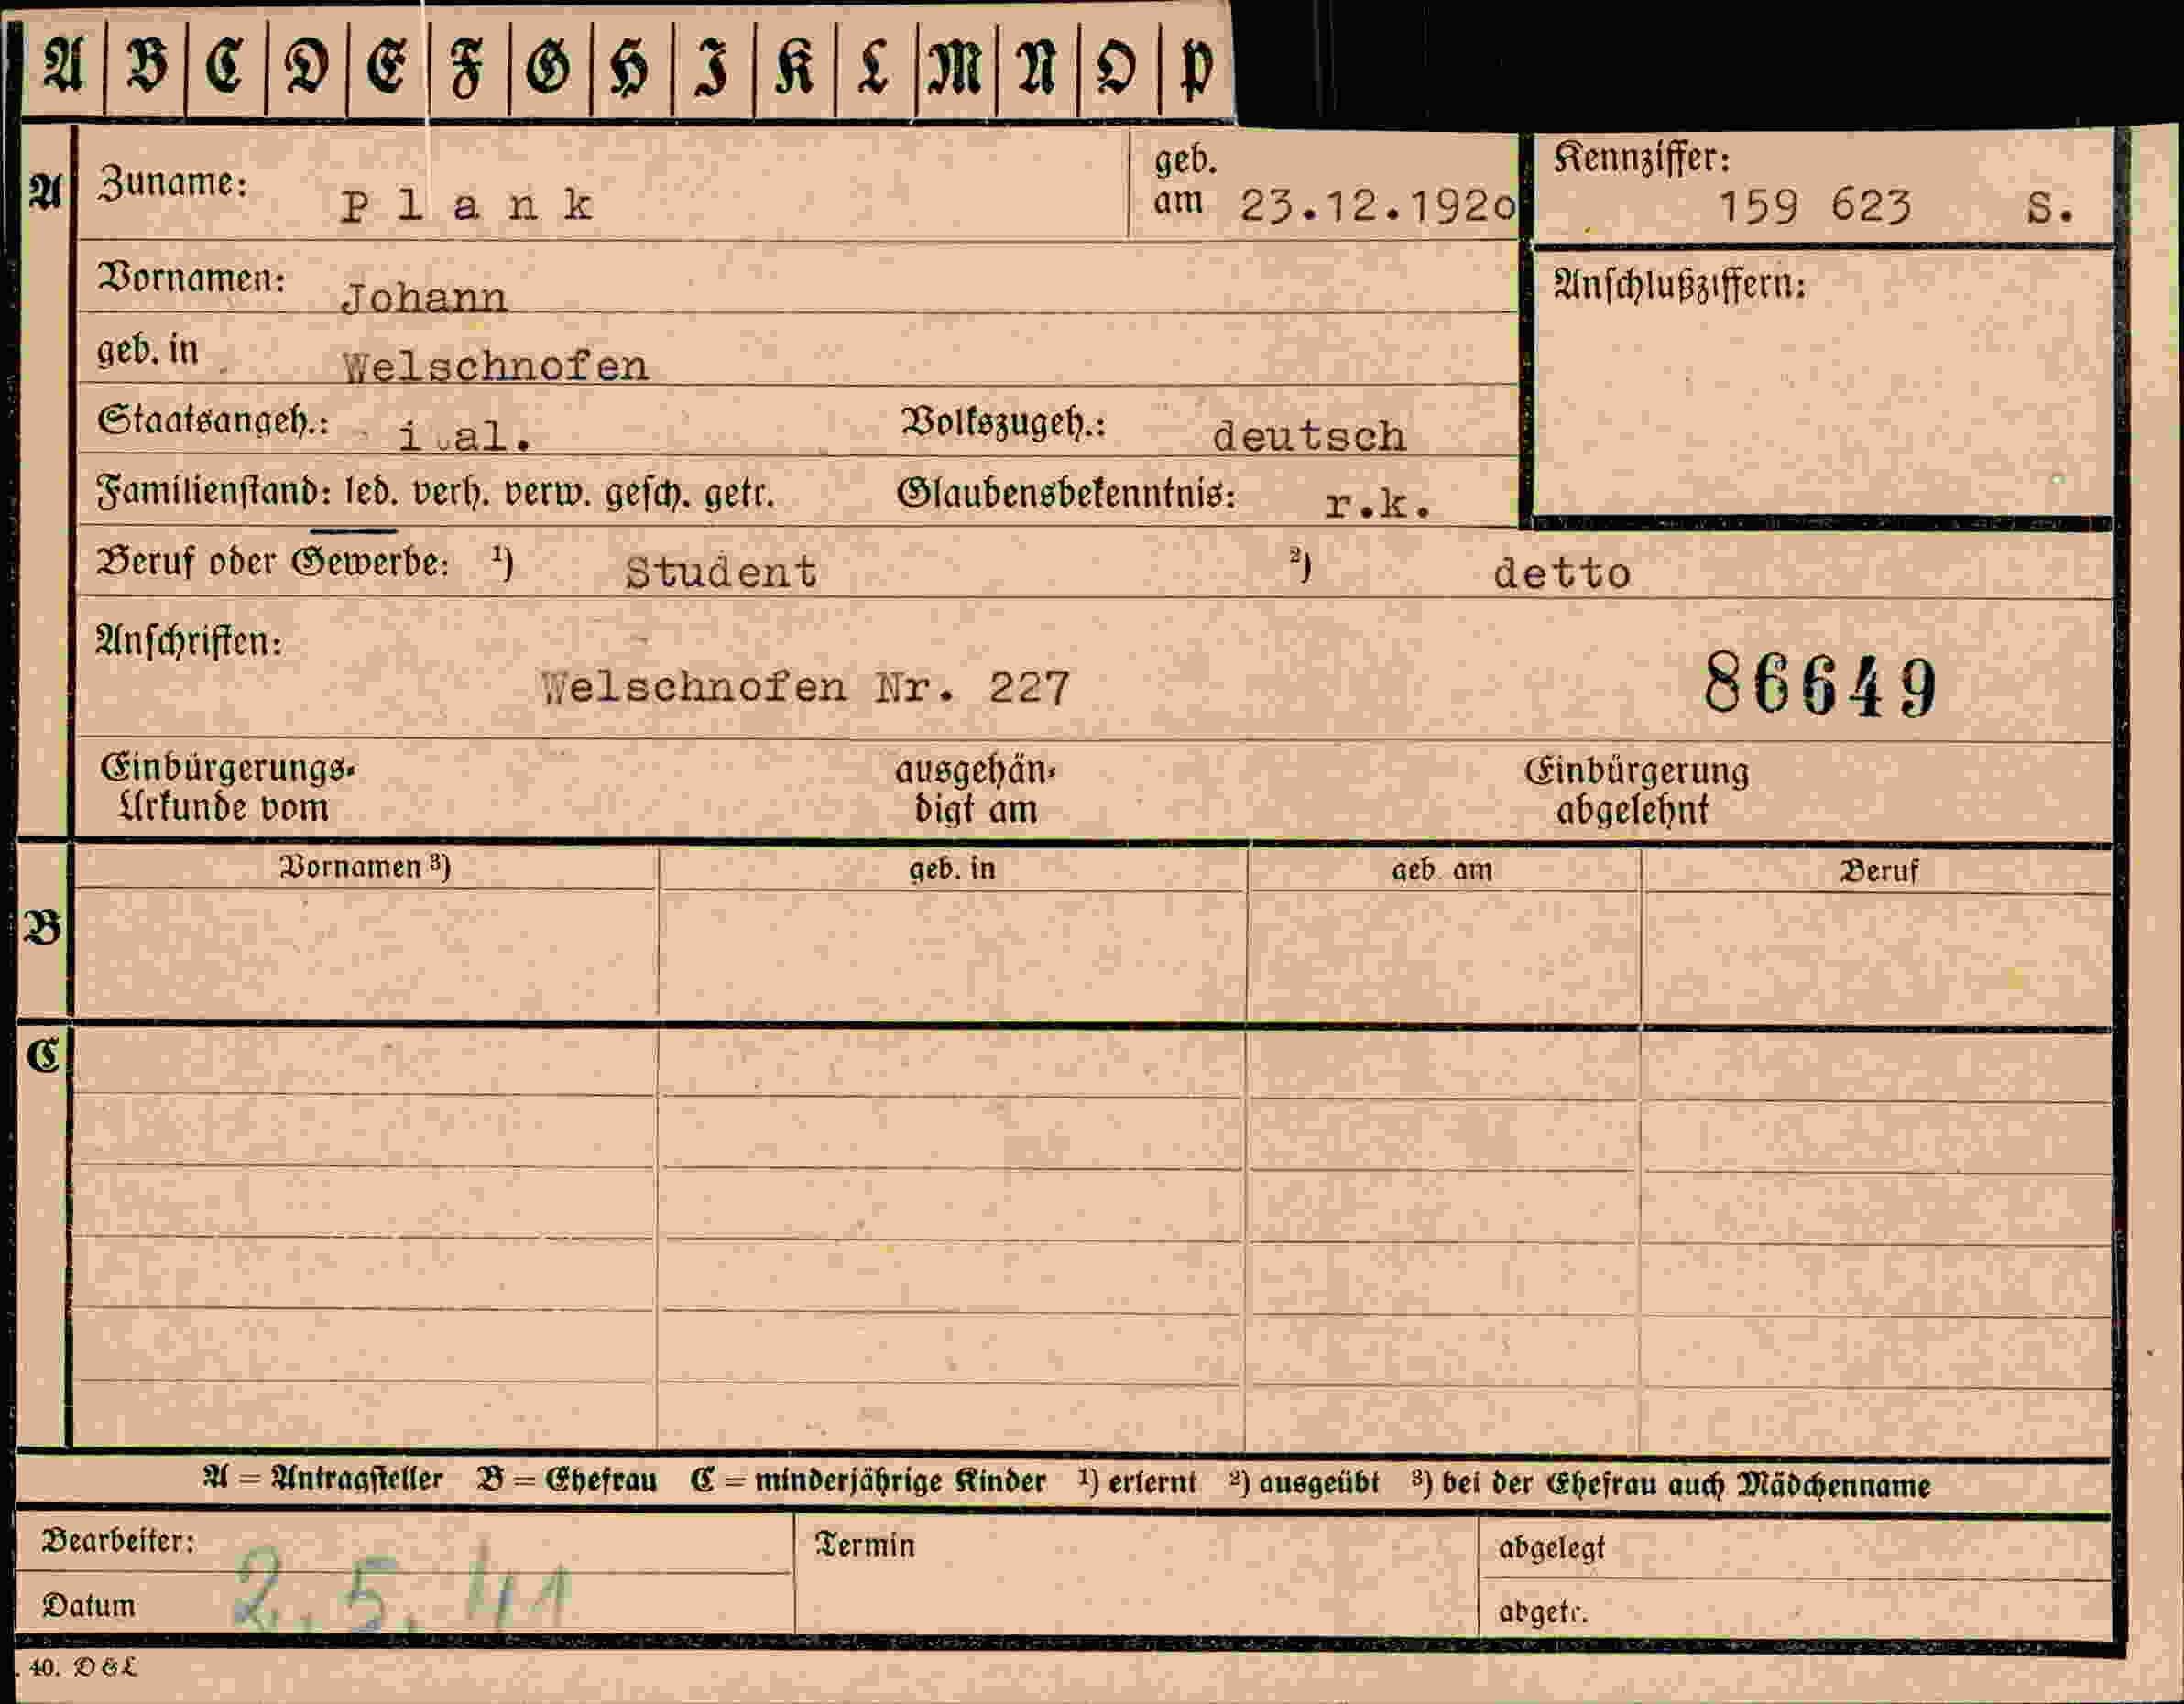 A B C D E F G H I K L M N O P
A Zuname: Plank geb. am 23.12.1920 Kennziffer: 159 623 S.
Vornamen: Johann Anschlußziffern:
geb. in Welschnofen
Staatsangeh.: i al. Volkszugeh.: deutsch
Familienstand: led. verh. verw. gesch. getr. Glaubensbekenntnis: r.k.
Beruf oder Gewerbe: 1) Student 2) detto
Anschriften:
Welschnofen Nr. 227 86649
Einbürgerungs- ausgehän- Einbürgerung
Urkunde vom digt am abgelehnt
Vornamen 3) geb. in geb. am Beruf
B
C
A = Antragsteller B = Ehefrau C = minderjährige Kinder 1) erlernt 2) ausgeübt 3) bei der Ehefrau auch Mädchenname
Bearbeiter: Termin abgelegt
Datum 2.5.41 abgetr.
. 40. DGL